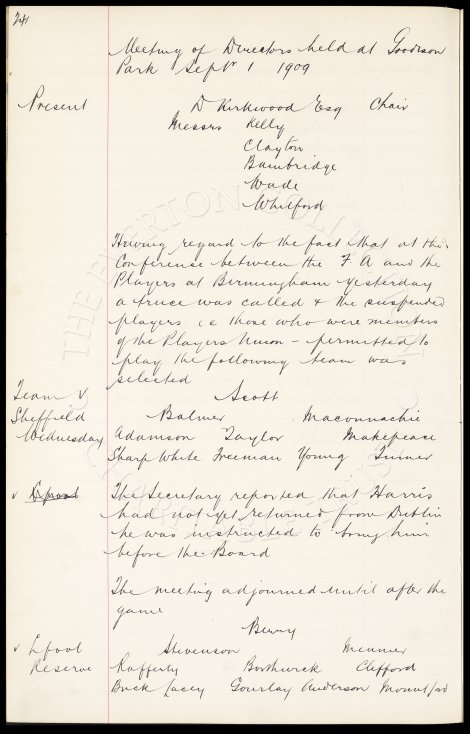 241
Meeting of Directors held at Goodison
Park Septr 1 1909
Present D Kirkwood Esq Chair
Messrs Kelly
Clayton
Bainbridge
Wade
Whitford
Having regard to the fact that at the
Conference between the F A and the
Players at Birmingham yesterday
a truce was called & the suspended
players i e those who were members
of the Players Union - permitted to
play the following team was
selected
Team v Scott
Sheffield Balmer Maconnachie
Wednesday Adamson Taylor Makepeace
Sharp White Freeman Young Turner
v L'pool The Secretary reported that Harris
had not yet returned from Dublin
he was instructed to bring him
before the Board
The meeting adjourned until after the
game
Berry
v L'pool Stevenson Meunier
Reserve Rafferty Borthwick Clifford
Buck Lacey Gourlay Anderson Mountford
THE EVERTON COLLECTION